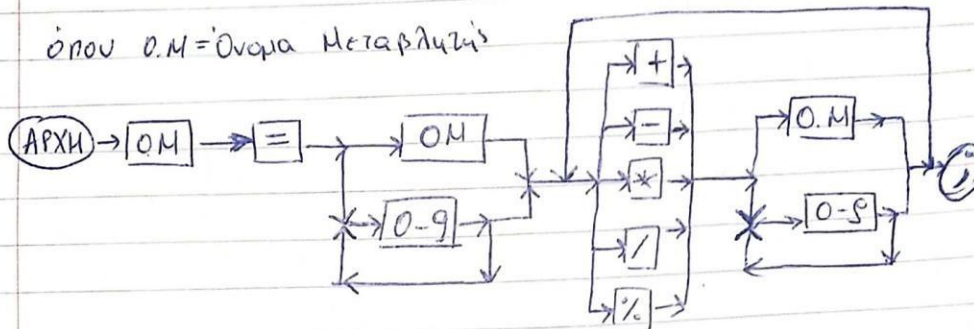 όπου Ο.Μ = Όνομα Μεταβλητής
ΑΡΧΗ ΟΜ = ΟΜ + - * / % Ο.Μ ;
0-9 0-9